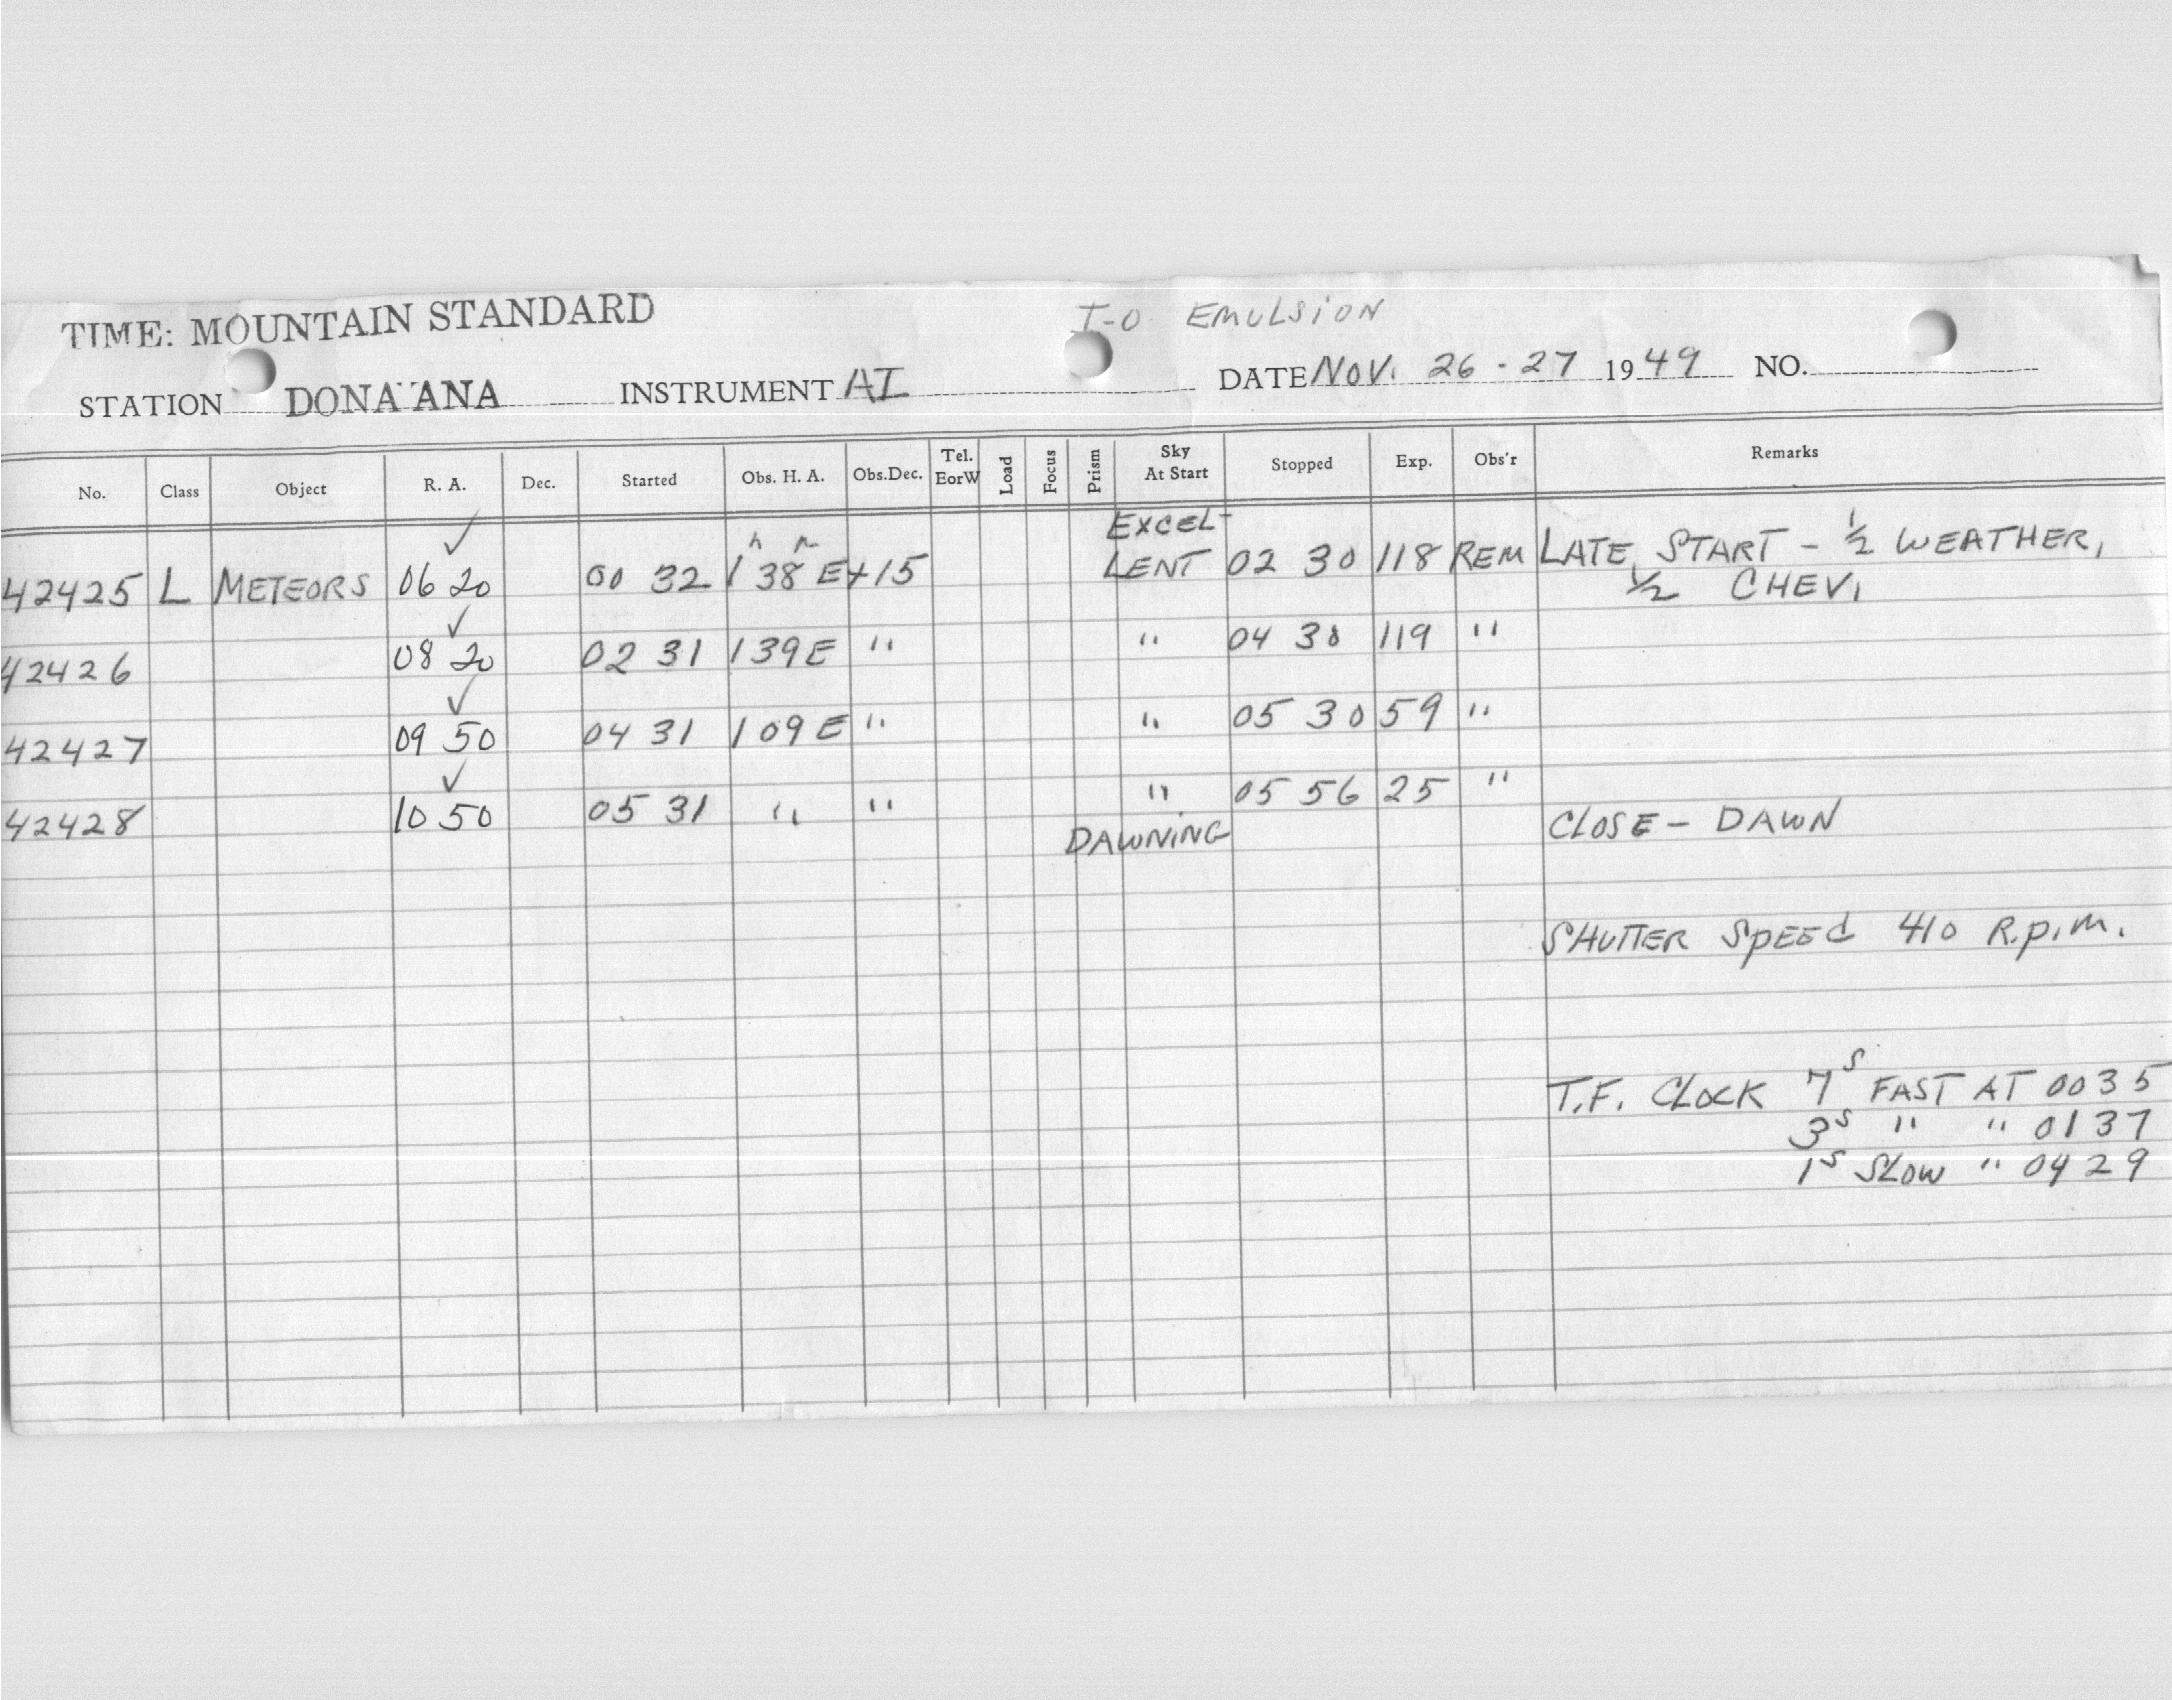 TIME: MOUNTAIN STANDARD
I-O EMULSION
STATION DONA ANA INSTRUMENT AI DATE NOV. 26 - 27 1949 NO.
No. Class Object R. A. Dec. Started Obs. H. A. Obs. Dec. Tel. EorW Load Focus Prism Sky At Start Stopped Exp. Obs'r Remarks
42425 L METEORS 06 20 ✓ 00 32 1h 38m E +15 EXCEL-LENT 02 30 118 REM LATE START - 1/2 WEATHER,
1/2 CHEV.
42426 08 20 ✓ 02 31 1 39 E " " 04 30 119 "
42427 09 50 ✓ 04 31 1 09 E " " 05 30 59 "
42428 10 50 ✓ 05 31 " " " 05 56 25 "
DAWNING CLOSE - DAWN
SHUTTER SPEED 410 R.P.M.
T.F. CLOCK 7s FAST AT 0035
3s " " 0137
1s SLOW " 0429